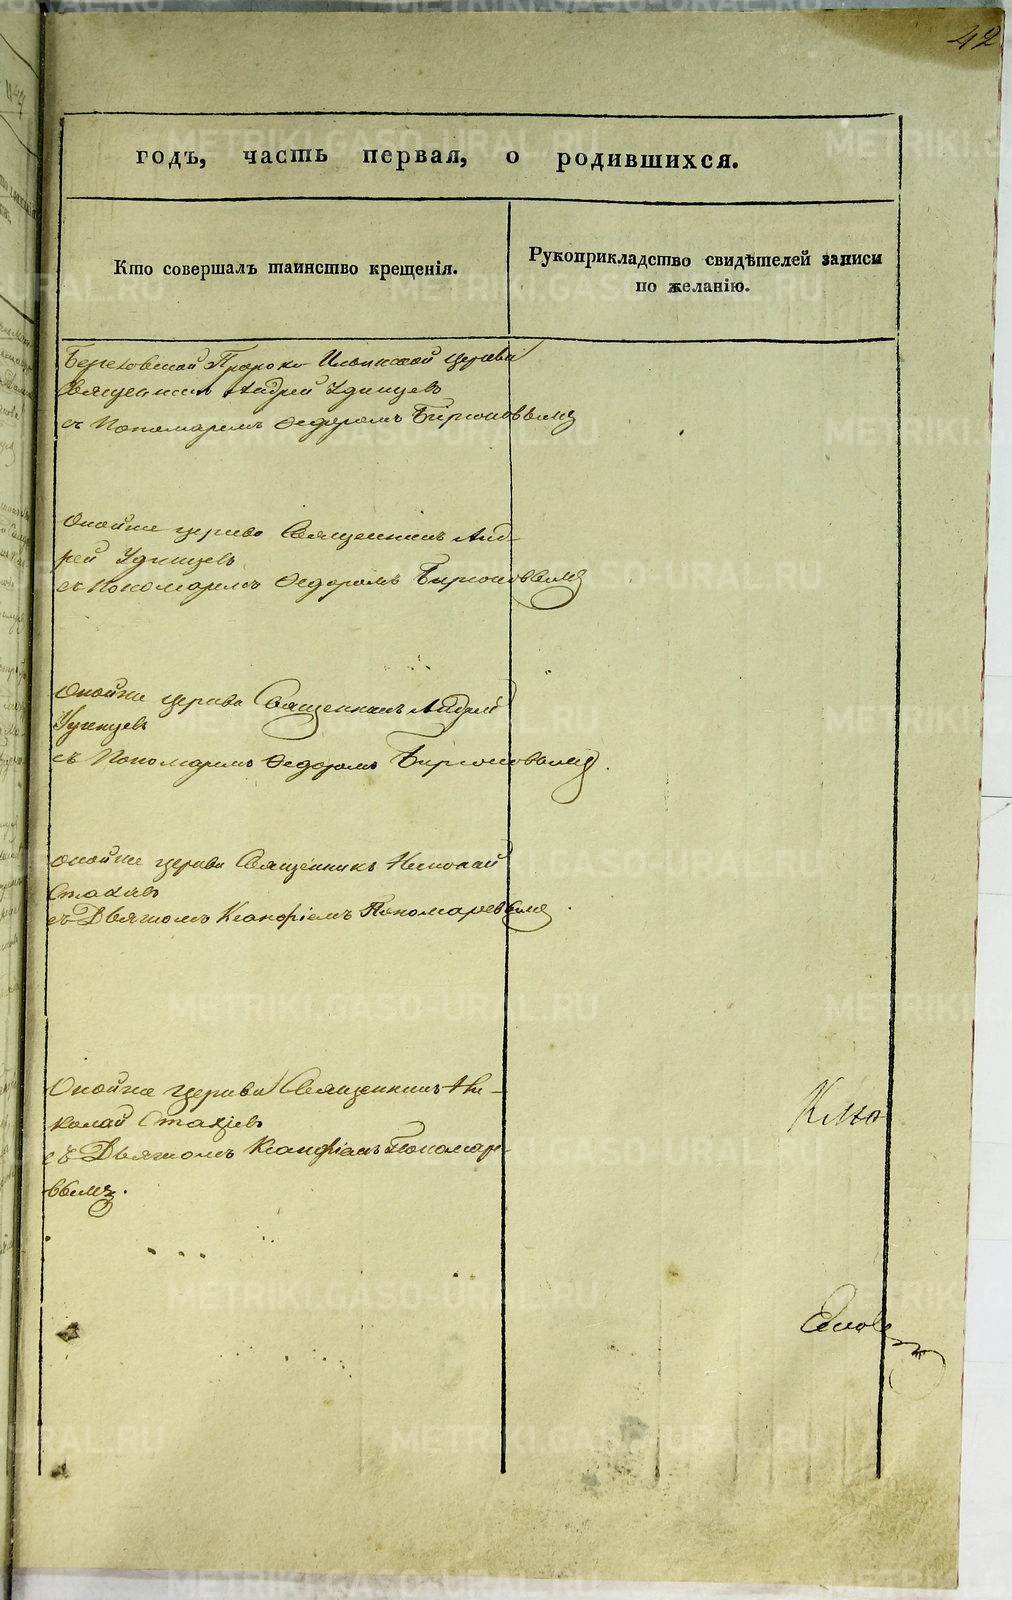 42
годъ, часть первая, о родившихся.
Кто совершалъ таинство крещенія.
Рукоприкладство свидѣтелей записи
по желанію.
Пророко-Ильинской церкви
Священникъ Андрей Удинцевъ
съ Пономаремъ Ѳедоромъ Бирюковымъ
Оной же церкви Священникъ Анд-
рей Удинцевъ
съ Пономаремъ Ѳедоромъ Бирюковымъ
Оной же церкви Священникъ Андрей
Удинцевъ
съ Пономаремъ Ѳедоромъ Бирюковымъ.
Оной же церкви Священникъ Николай
съ Дьячкомъ Пономаревымъ
Оной же церкви Священникъ Ни-
колай
съ Дьячкомъ Пономаре-
вымъ.
METRIKI.GASO-URAL.RU